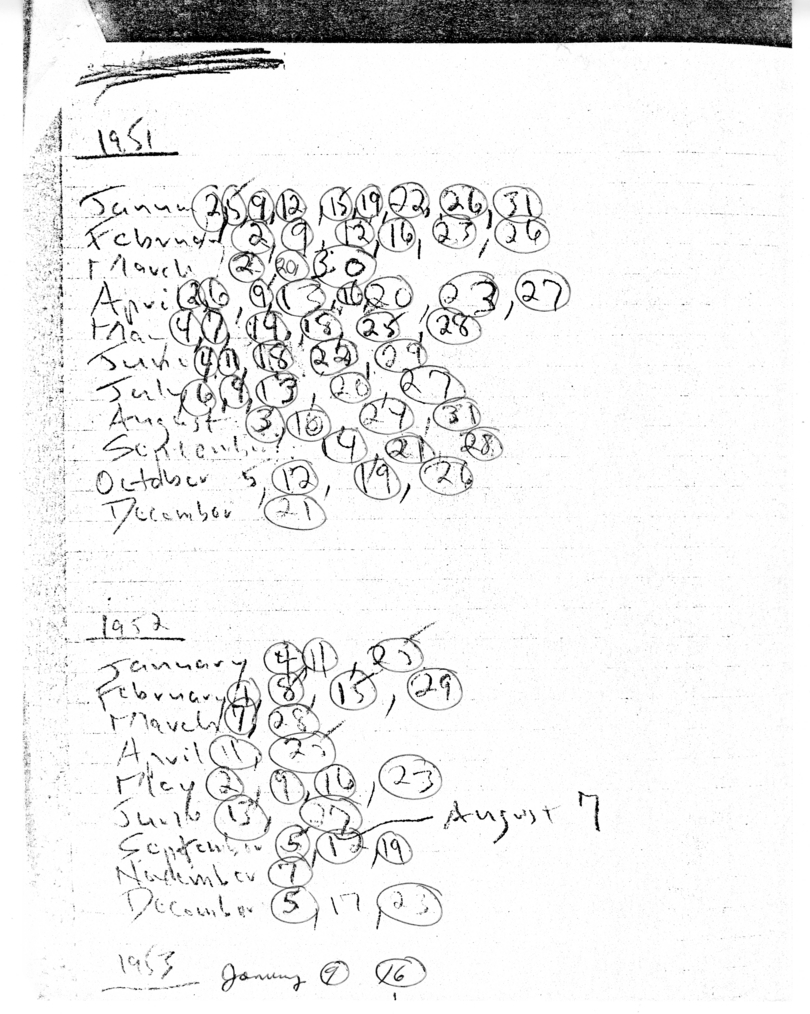 1951
January 2, 5, 9, 12, 15, 19, 22, 26, 31
February 2, 9, 12, 16, 23, 26
March 2, 20, 30
April 2, 6, 9, 13, 16, 20, 23, 27
May 4, 7, 14, 18, 25, 28
June 4, 11, 18, 22, 29
July 6, 9, 13, 20, 27
August 3, 10, 24, 31
September 14, 21, 28
October 5, 12, 19, 26
December 21
1952
January 4, 11, 25
February 1, 8, 15, 29
March 7, 28
April 11, 25
May 2, 9, 16, 23
June 13, 27
August 7
September 5, 12, 19
November 7
December 5, 17, 23
1953 January 9 16